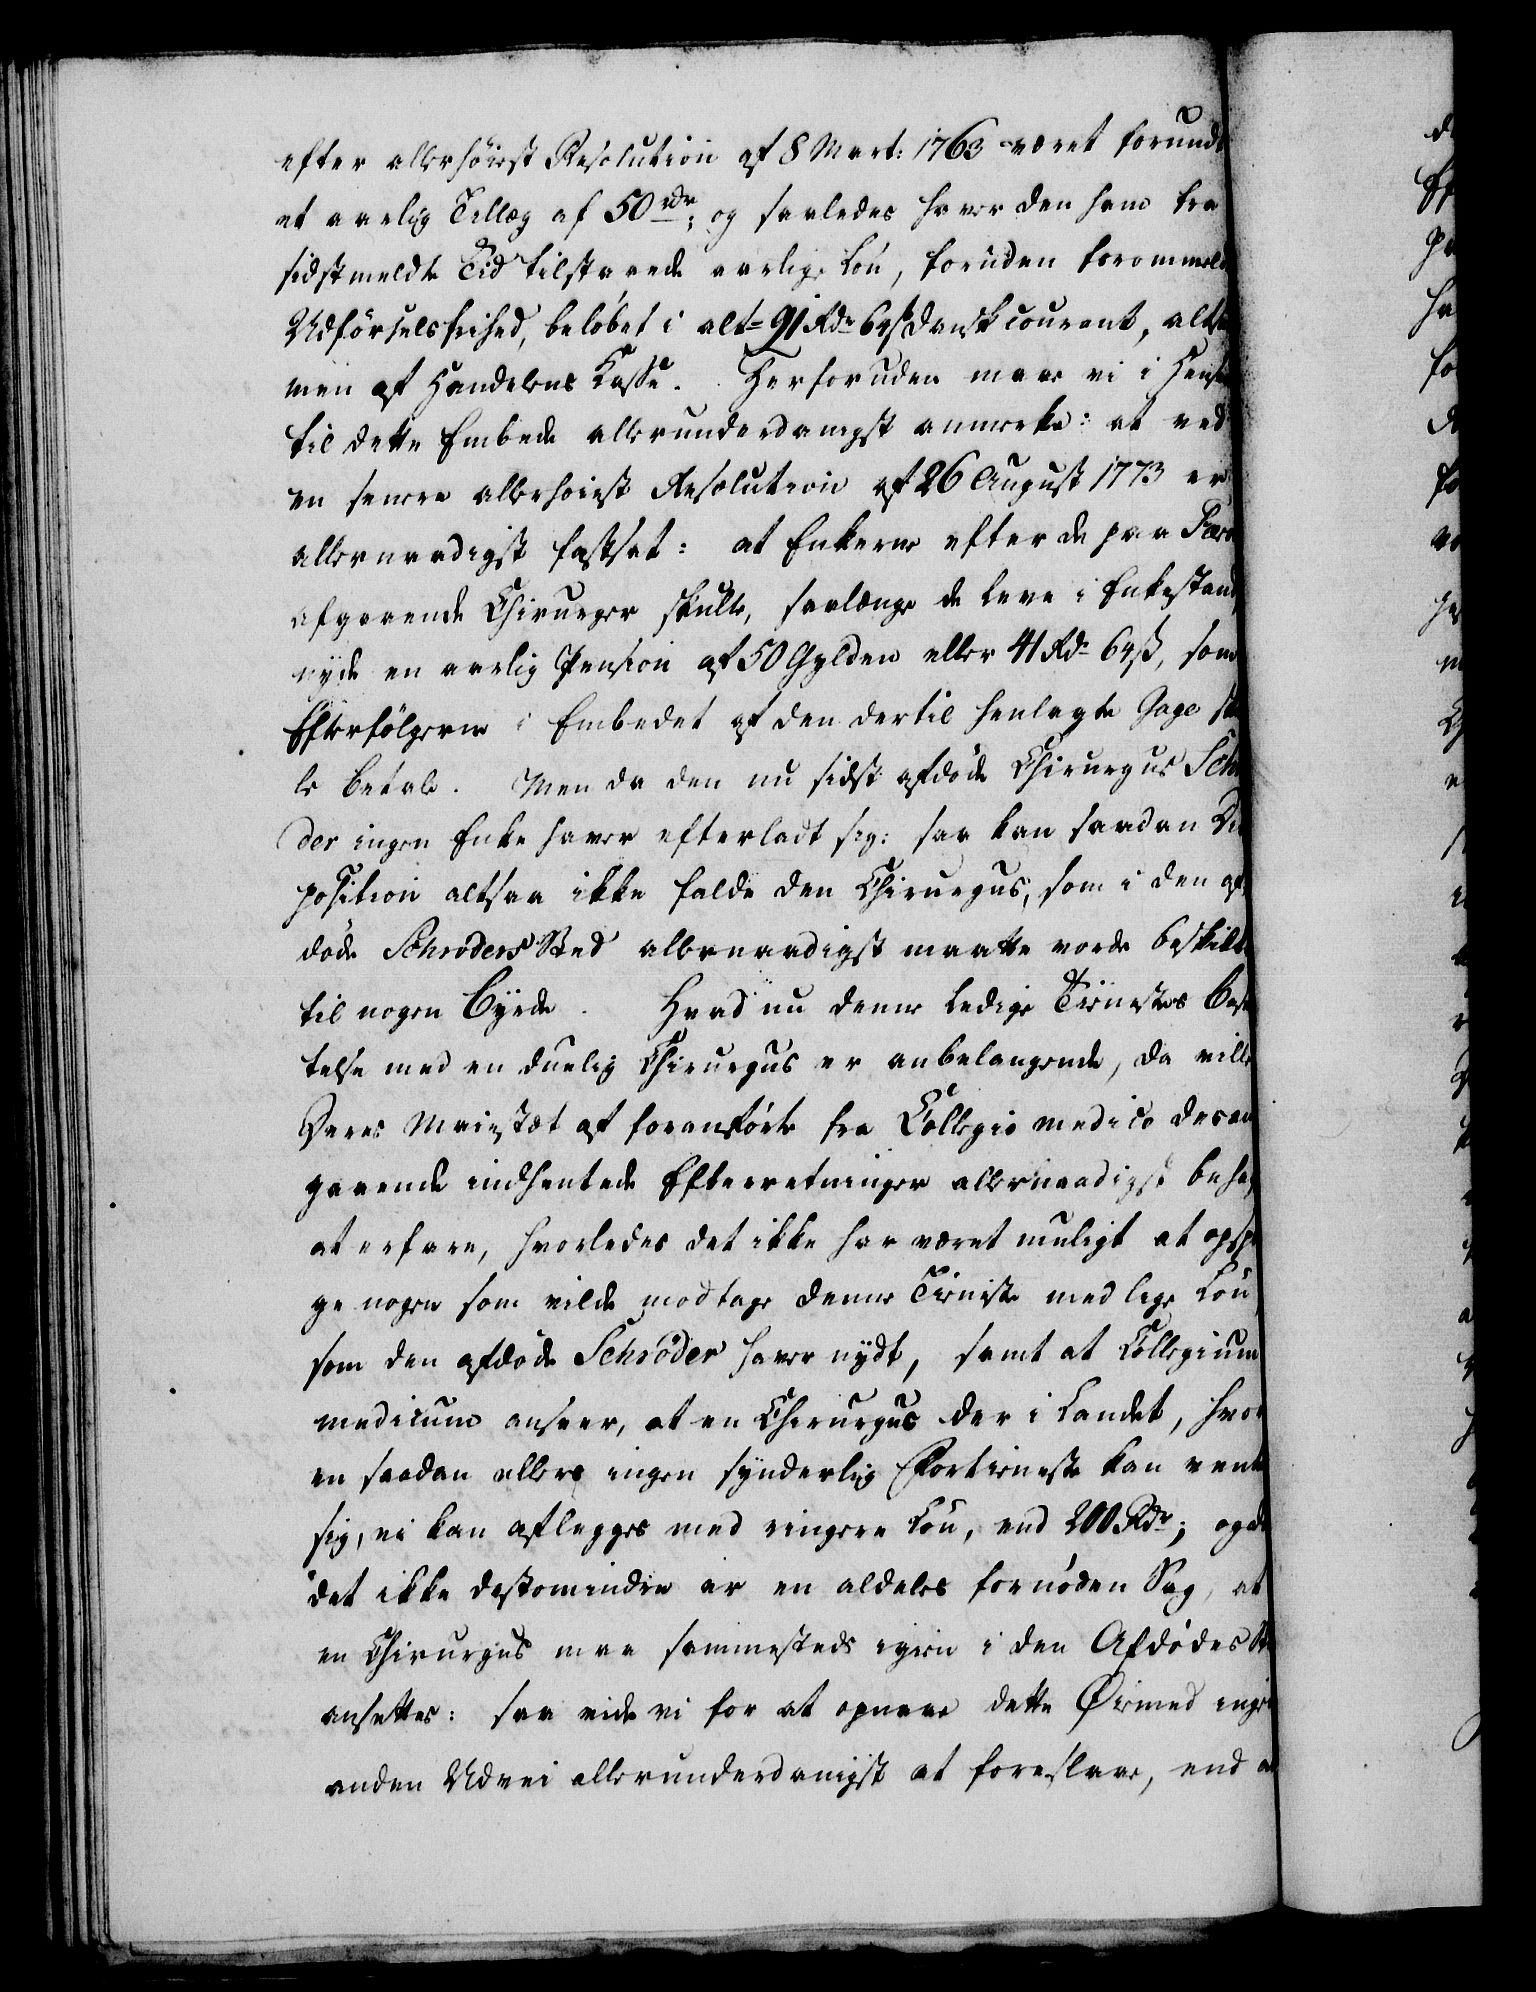 efter allerhöiest Resolution af 8 Mart: 1763 været forundt
et aarlig Tillæg af 50 rdr; og saaledes haver den ham fra
sidstmeldte Tid tilstaaede aarlige Lön, foruden forommeldte
Udförselsfrihed, beløbet i alt 91 Rdr 64 ß dansk courant, altsam
men af Handelens Casse. Herforuden maae vi i Hensee
til dette Embede allerunderdanigst anmerke: at ved
en senere allerhöiest Resolution af 26 August 1773 er
allernaadigst fastsat: at Enkerne efter de paa Færø
afgaaende Chirurger skulle, saalænge de leve i Enkestand,
nyde en aarlig Pension af 50 Gylden eller 41 Rdr 64 ß, som
Efterfölgerne i Embedet af den dertil henlagte Gage skul
le betale. Men da den nu sidst afdöde Chirurgus Schrö
der ingen Enke haver efterladt sig: saa kan saadan Dis
position altsaa ikke falde den Chirurgus, som i den af
døde Schrøders Sted allernaadigst maatte vorde beskikket
til nogen Byrde. Hvad nu denne ledige Tienestes besæt
telse med en duelig Chirurgus er anbelangende, da ville
Deres Maiestæt af foranförte fra Collegio medico desan
gaaende indhentede Efterretninger allernaadigst behage
at erfare, hvorledes det ikke har været muligt at opspø
ge nogen som vilde modtage denne Tieniste med lige Lön
som den afdöde Schröder haver nydt, samt at Collegium
medicum anseer, at en Chirurgus der i Landet, hvor
en saadan ellers ingen synderlig Fortieneste kan vente
sig, ei kan aflegges med ringere Lön, end 200 Rdr; og da
det ikke destomindre er en aldeles fornöden Sag, at
en Chirurgus maa sammesteds igien i den Afdödes St
ansettes: saa vide vi for at opnaae dette Øiemed ingen
anden Udvei allerunderdanigst at foreslaae, end at